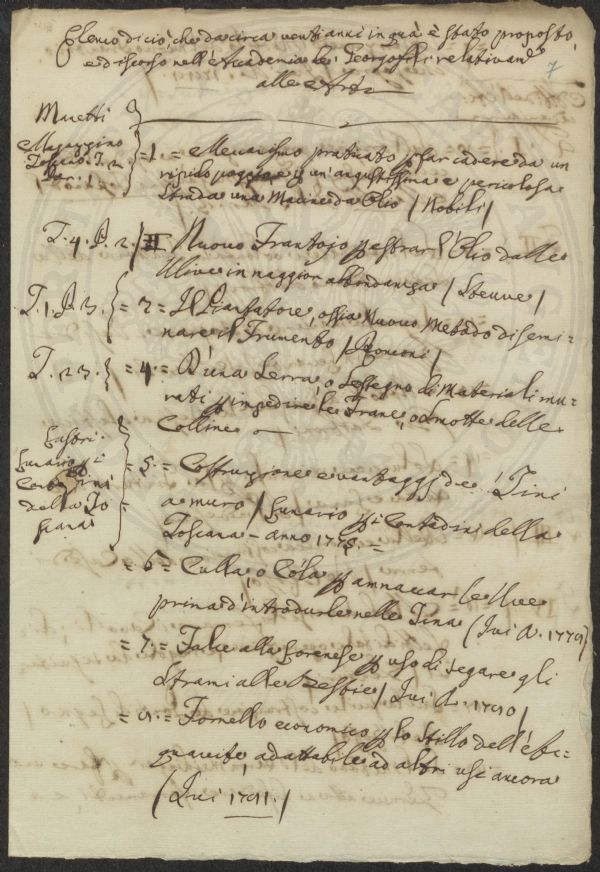 Elenco di ciò, che da circa venti anni in quà è stato proposto,
e discorso nell'Accademia de' Georgofili relativam.e
alle Arti
7
Manetti
Magazzino
Toscano T. 2.
Par. 1
= 1. = Meccanismo praticato p far cadere da un
ripido poggio, e p un'angustissima e pericolosa
strada una Macine da Olio / Nobili /
T. 4. P. 2. / II Nuovo Frantojo p estrar l'Olio dalle
Ulive in maggior abbondanza /
T. 1. P. 3. = 3 = Il Piantatore, ossia Nuovo Metodo di semi-
nare il Frumento / Ronconi /
T. 23. = 4. = D'una Serra, o Sostegno di Materiali mu-
rati p impedire le Frane, o Smotte delle
Colline
Lastri.
Lunario pi
Contadini
della To
scana
= 5. = Costruzione e vantaggj de' Tini
a muro / Lunario pi Contadini della
Toscana - anno 1778 =
= 6 = Culla, o Cola p ammaccar le Uve
prima d'introdurle nelle Tina (Ivi A. 1779)
= 7. = Falce alla Lorenese p uso di segare gli
Strami alle Bestie / Ivi A. 1790 /
= Fornello economico p lo stillo dell'
quavite, adattabile ad altri usi ancora
/ Ivi 1791. /